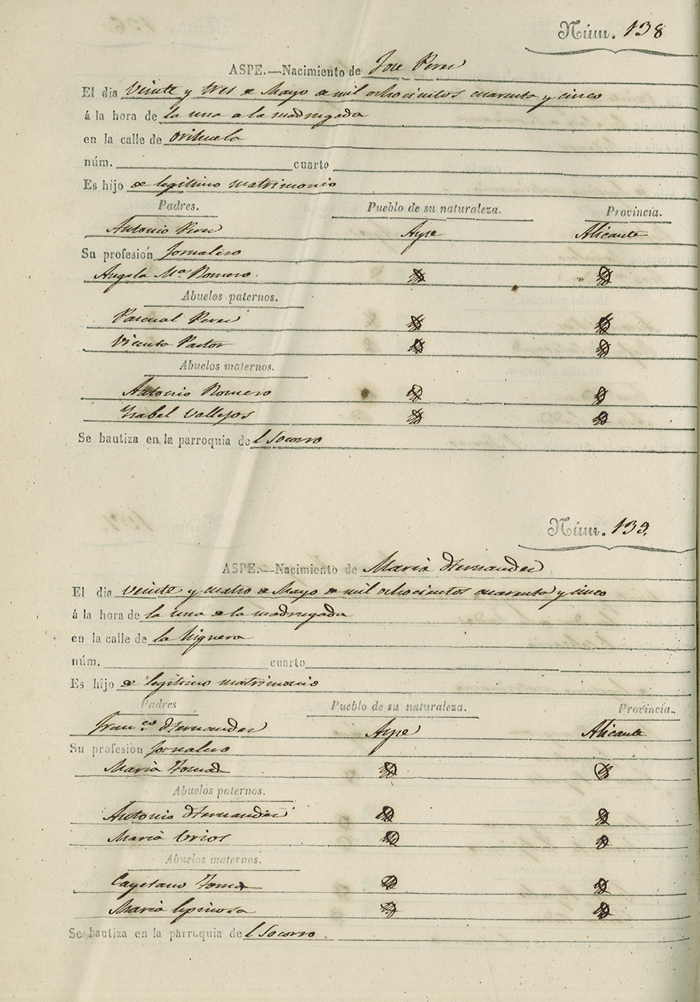 Núm. 138
ASPE.—Nacimiento de Jose Perez
El dia Veinte y tres de Mayo de mil ochocientos cuarenta y cinco
á la hora de la una a la madrugada
en la calle de Orihuela
núm. cuarto
Es hijo de legitimo matrimonio
Padres. Pueblo de su naturaleza. Provincia.
Antonio Perez Aspe Alicante
Su profesión Jornalero
Angela Mª Romero.
Abuelos paternos.
Pascual Perez
Vicenta Pastor
Abuelos maternos.
Antonio Romero
Ysabel Vallejos
Se bautiza en la parroquia de l Socorro
Núm. 139.
ASPE.—Nacimiento de Maria Hernandez
El dia veinte y cuatro de Mayo de mil ochocientos cuarenta y cinco
á la hora de la una de la madrugada
en la calle de la higuera
núm. cuarto
Es hijo de legitimo matrimonio
Padres Pueblo de su naturaleza. Provincia.
Franco. Hernandez Aspe Alicante
Su profesión Jornalero
Maria Tomas
Abuelos paternos.
Antonio Hernandez
Maria Brios
Abuelos maternos.
Cayetano Tomas
Maria Espinosa
Se bautiza en la parroquia de l Socorro.